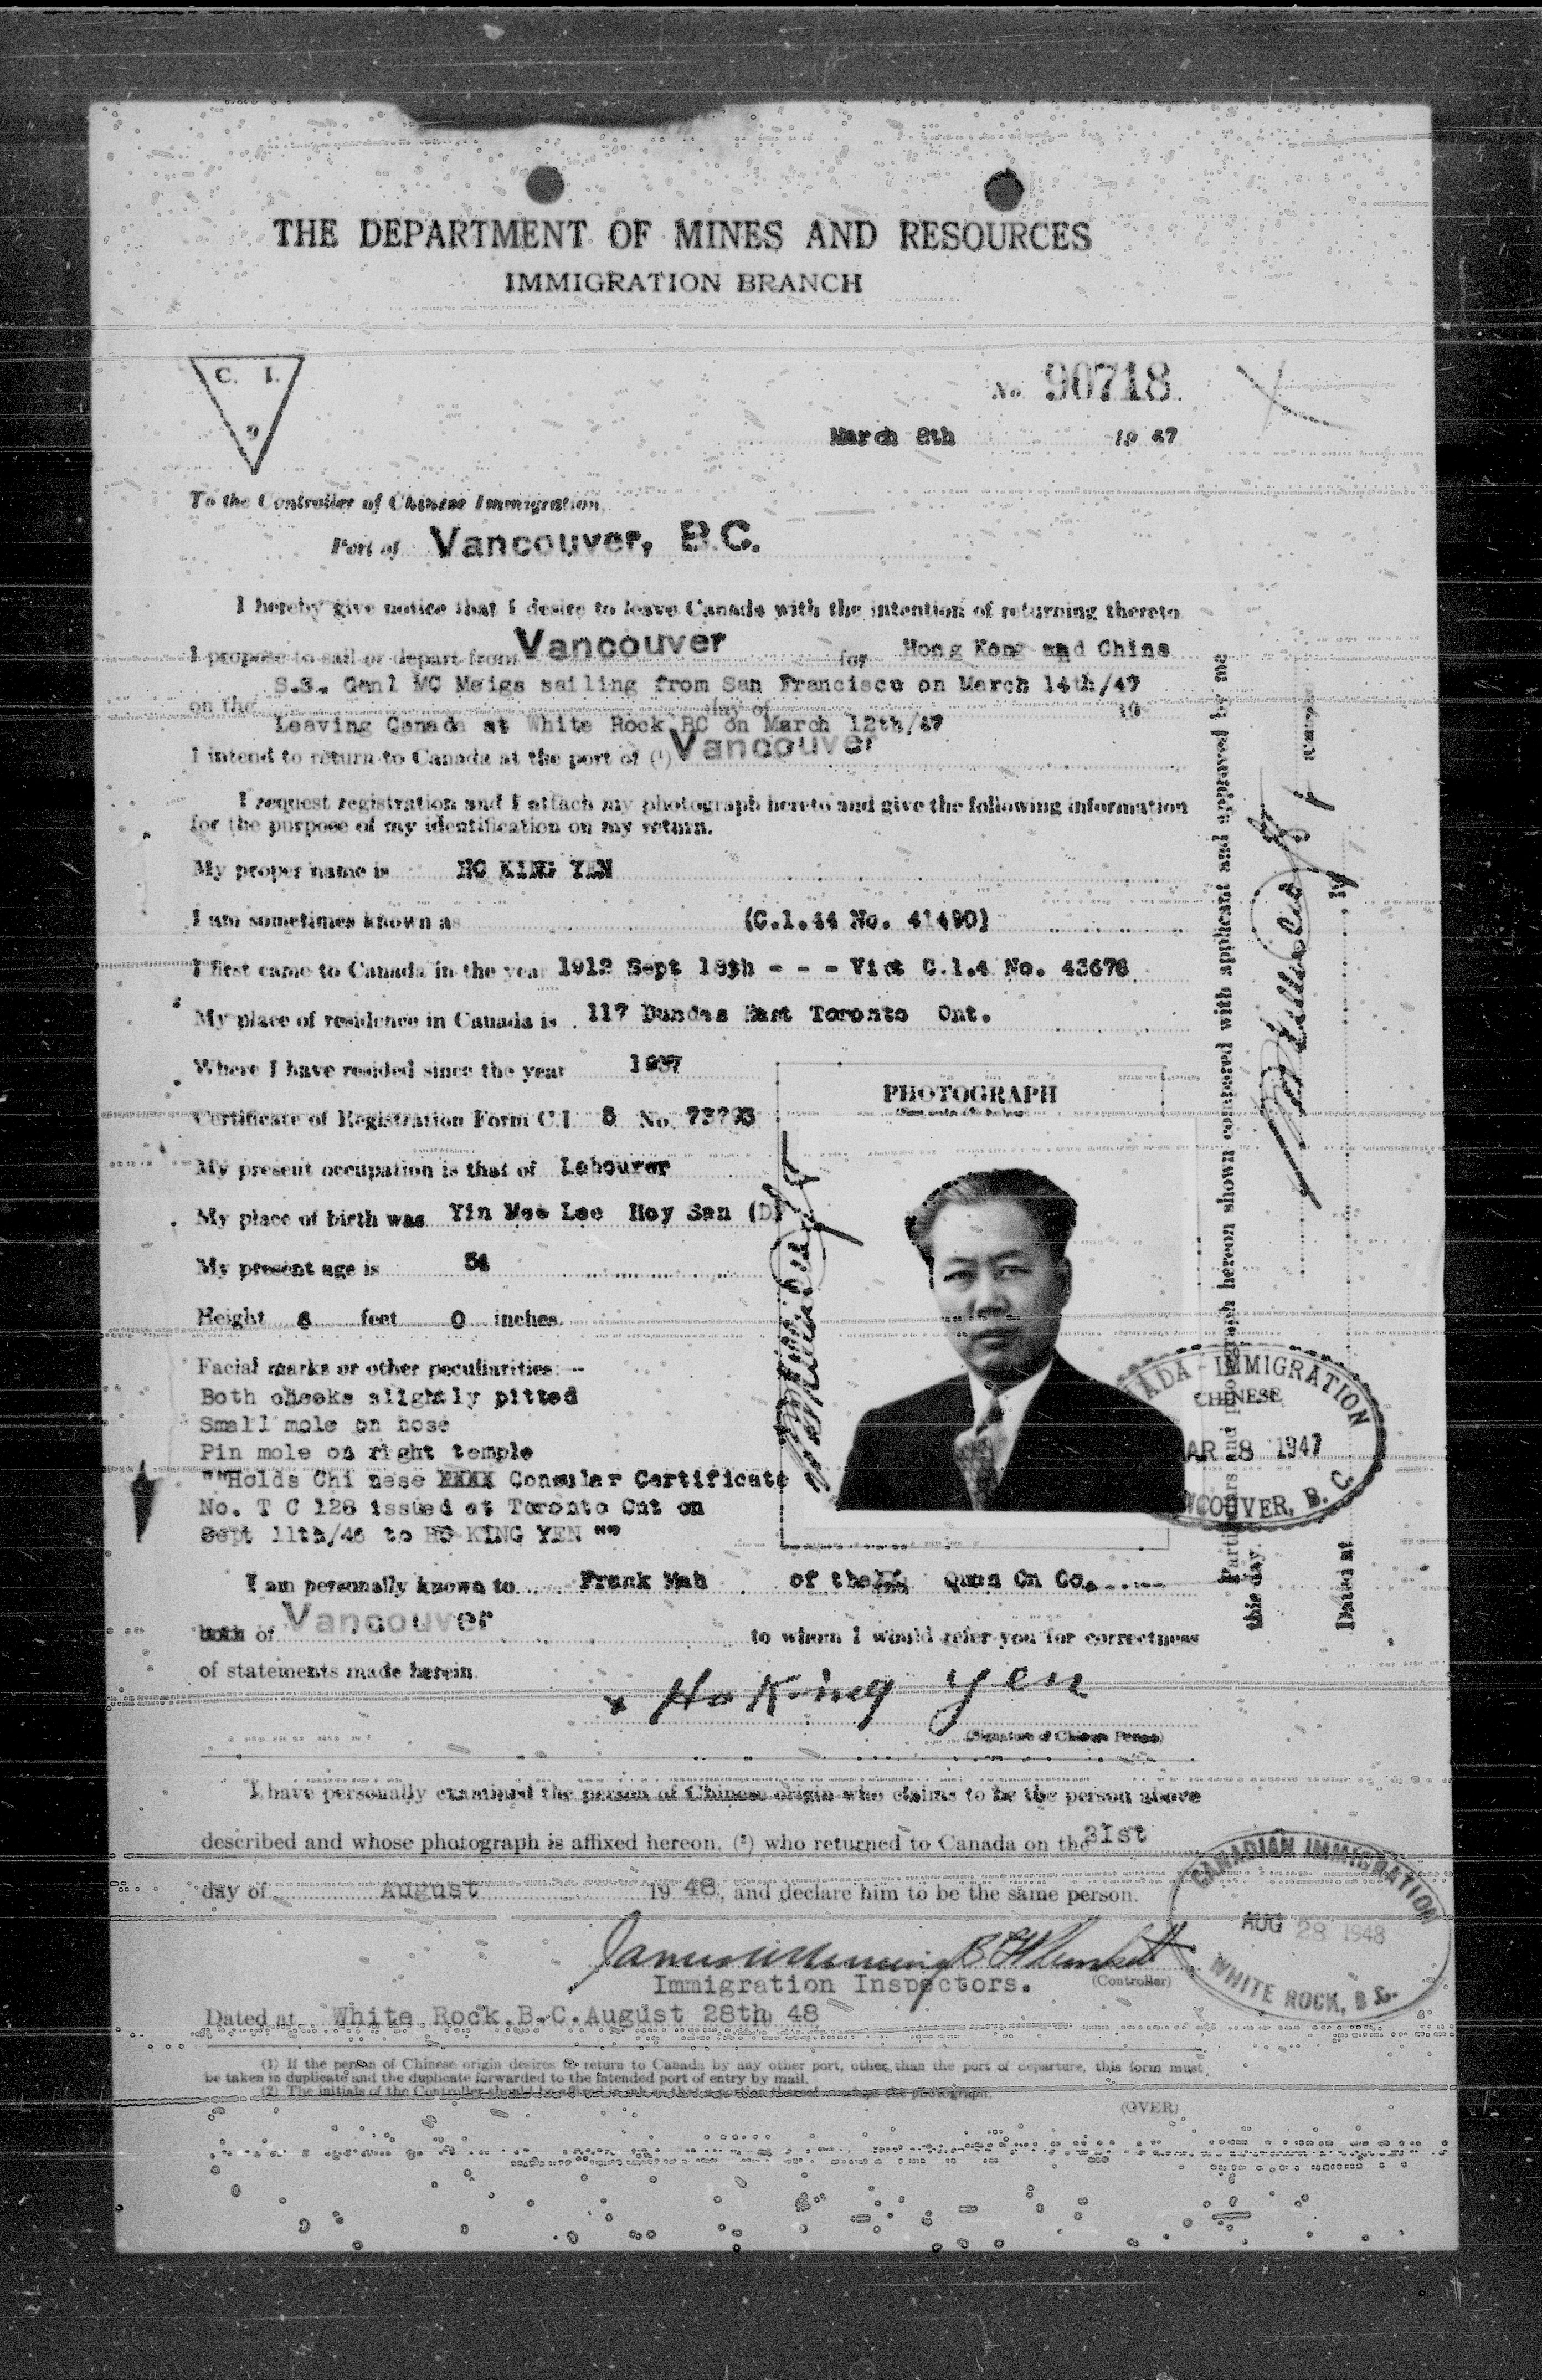 THE DEPARTMENT OF MINES AND RESOURCES
IMMIGRATION BRANCH
C. I.
9
No. 90718
March 8th 1947
To the Controller of Chinese Immigration,
Port of Vancouver, B.C.
I hereby give notice that I desire to leave Canada with the intention of returning thereto
I propose to sail or depart from Vancouver for Hong Kong and China
S.S. Genl MC Meigs sailing from San Francisco on March 14th/47
on the day of 19
Leaving Canada at White Rock BC on March 12th/47
I intend to return to Canada at the port of (1) Vancouver
I request registration and I attach my photograph hereto and give the following information
for the purpose of my identification on my return.
My proper name is HO KING YEN
I am sometimes known as (C.I.44 No. 41490)
I first came to Canada in the year 1912 Sept 18th - - - Vict C.I.4 No. 43678
My place of residence in Canada is 117 Dundas East Toronto Ont.
Where I have resided since the year 1937
Certificate of Registration Form C.I. 5 No. 73793
My present occupation is that of Labourer
My place of birth was Yin Mee Lee Hoy San (D)
My present age is 54
Height feet 0 inches.
Facial marks or other peculiarities:—
Both cheeks slightly pitted
Small mole on nose
Pin mole on right temple
""Holds Chinese XXXX Consular Certificate
No. T C 128 issued at Toronto Ont on
Sept 11th/46 to HO KING YEN ""
PHOTOGRAPH
CANADA - IMMIGRATION
CHINESE
MAR 8 1947
VANCOUVER, B. C.
Particulars and photograph hereon shown compared with applicant and approved by me
this day.
Dated at 19
I am personally known to Frank Mah of the Quon On Co.
both of Vancouver to whom I would refer you for correctness
of statements made herein.
x Ho King Yen
(Signature of Chinese Person)
I have personally examined the person of Chinese origin who claims to be the person above
described and whose photograph is affixed hereon, (2) who returned to Canada on the 31st
day of August 19 48, and declare him to be the same person.
Immigration Inspectors. (Controller)
CANADIAN IMMIGRATION
AUG 28 1948
WHITE ROCK, B.C.
Dated at White Rock.B.C.August 28th 48
(1) If the person of Chinese origin desires to return to Canada by any other port, other than the port of departure, this form must
be taken in duplicate and the duplicate forwarded to the intended port of entry by mail.
(2) The initials of the Controller should be affixed in ink so that a portion thereof crosses the photograph.
(OVER)